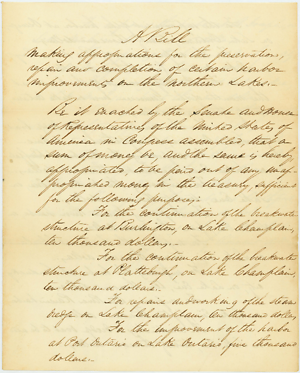 A Bill
making appropriations for the preservation,
repair and completion of certain harbor
improvements on the northern Lakes.
Be it enacted by the Senate and House
of Representatives of the United States of
America in Congress assembled, that a
sum of money be, and the same is hereby
appropriated to be paid out of any unap-
propriated money in the treasury, sufficient
for the following purposes:
For the continuation of the breakwater
structure at Burlington, on Lake Champlain,
ten thousand dollars.
For the continuation of the breakwater
structure at Plattsburgh, on Lake Champlain,
ten thousand dollars.
For repairs and working of the steam
dredge on Lake Champlain, ten thousand dollars
For the improvement of the harbor
at Port Ontario on Lake Ontario, five thousand
dollars.